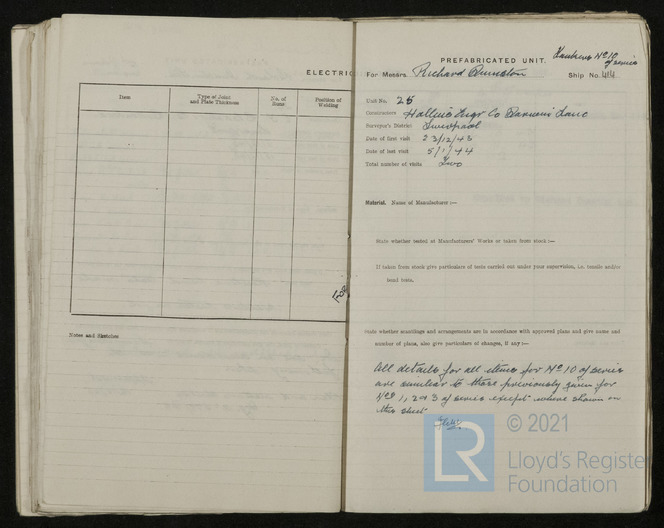 ELECTRIC
Date
Type of Joint and Plate Thickness
No. of Runs
Position of Welding
Notes and Sketches
Nº 10 of series
PREFABRICATED UNIT.
For Messrs. Richard Dunston Ship No. 414
Unit No. 25
Constructors Engr Co Lane
Surveyor's District Liverpool
Date of first visit 23/12/43
Date of last visit 5/1/44
Total number of visits Two
Material. Name of Manufacturer :—
State whether tested at Manufacturers' Works or taken from stock :—
If taken from stock give particulars of tests carried out under your supervision, i.e. tensile and/or
bend tests.
State whether scantlings and arrangements are in accordance with approved plans and give name and
number of plans, also give particulars of changes, if any :—
All details for all items for Nº 10 of series
are similar to those previously given for
Nos 1, 2 & 3 of series except where shown on
this sheet
© 2021
LR
Lloyd's Register
Foundation